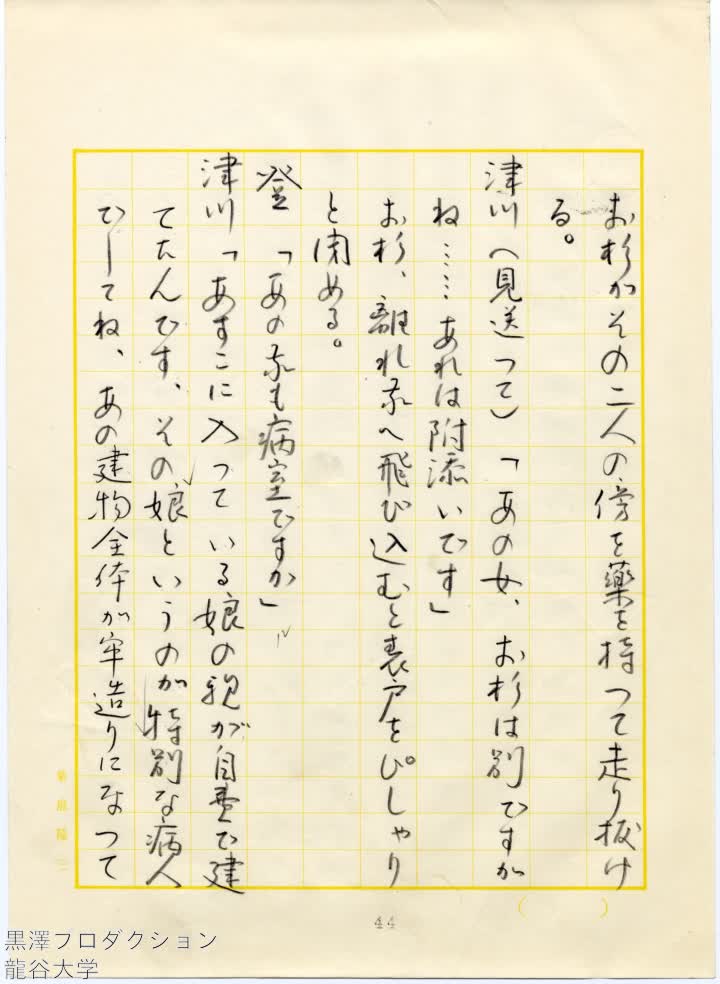 お杉がその二人の傍を薬を持つて走り抜け
る。
津川（見送つて）「あの女、お杉は別ですが
ね……あれは附添いです」
お杉、離れ家へ飛び込むと表戸をぴしゃり
と閉める。
登　「あの家も病室ですか」
津川「あすこに入っている娘の親が自費で建
てたんです、その娘というのが特別な病人
でしてね、あの建物全体が牢造りになつて
44
黒澤プロダクション
龍谷大学